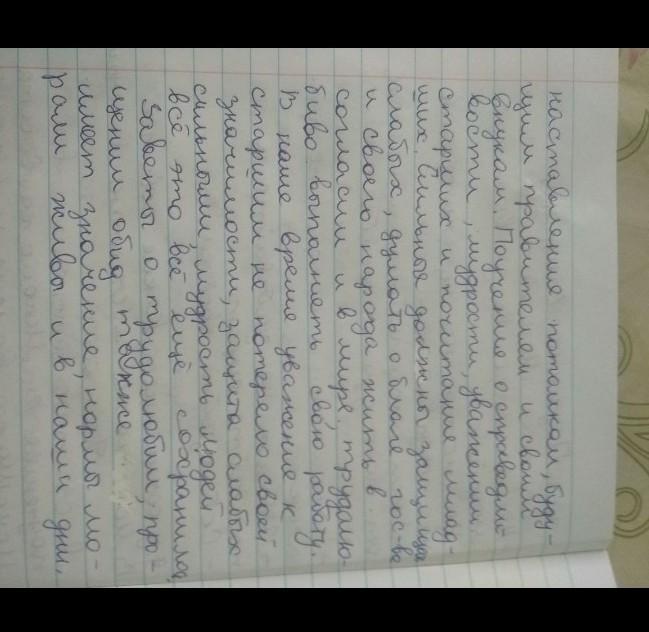 наставление потомкам, буду-
щим правителем и своим
внукам. Поучение о справедли-
вости, мудрости, уважении
старших и почитание млад-
ших. Сильные должны защищать
слабых, думать о благе гос-ва
и своего народа жить в
согласии и в мире, трудолю-
биво выполнять свою работу.
В наше время уважение к
старшим не потеряло своей
значимости, защита слабых
сильными, мудрость людей
всё это всё ещё сохранилось
Заветы о трудолюбии, про-
щении обид также
имеет значение, нормы мо-
рали живы и в наши дни.